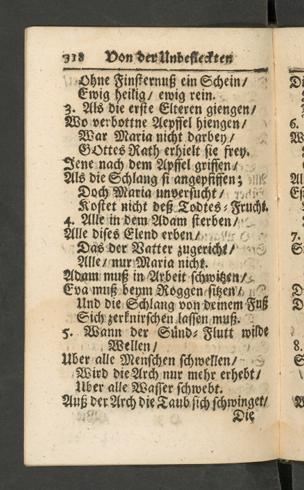 318 Von der Unbefleckten
Ohne Finsternuß ein Schein/
Ewig heilig/ ewig rein.
3. Als die erste Elteren giengen/
Wo verbottne Aepffel hiengen/
War Maria nicht darbey/
GOttes Rath erhielt sie frey.
Jene nach dem Apffel griffen/
Als die Schlang si angepfiffen;
Doch Maria unversucht/
Kostet nicht deß Todtes-Frucht.
4. Alle in dem Adam sterben/
Alle dises Elend erben/
Das der Vatter zugericht/
Alle/ nur Maria nicht.
Adam muß in Arbeit schwitzen/
Eva muß beym Roggen sitzen/
Und die Schlang von deinem Fuß
Sich zerknirschen lassen muß.
5. Wann der Sünd-Flutt wilde
Wellen/
Uber alle Menschen schwellen/
Wird die Arch nur mehr erhebt/
Uber alle Wasser schwebt.
Auß der Arch die Taub sich schwinget/
Die